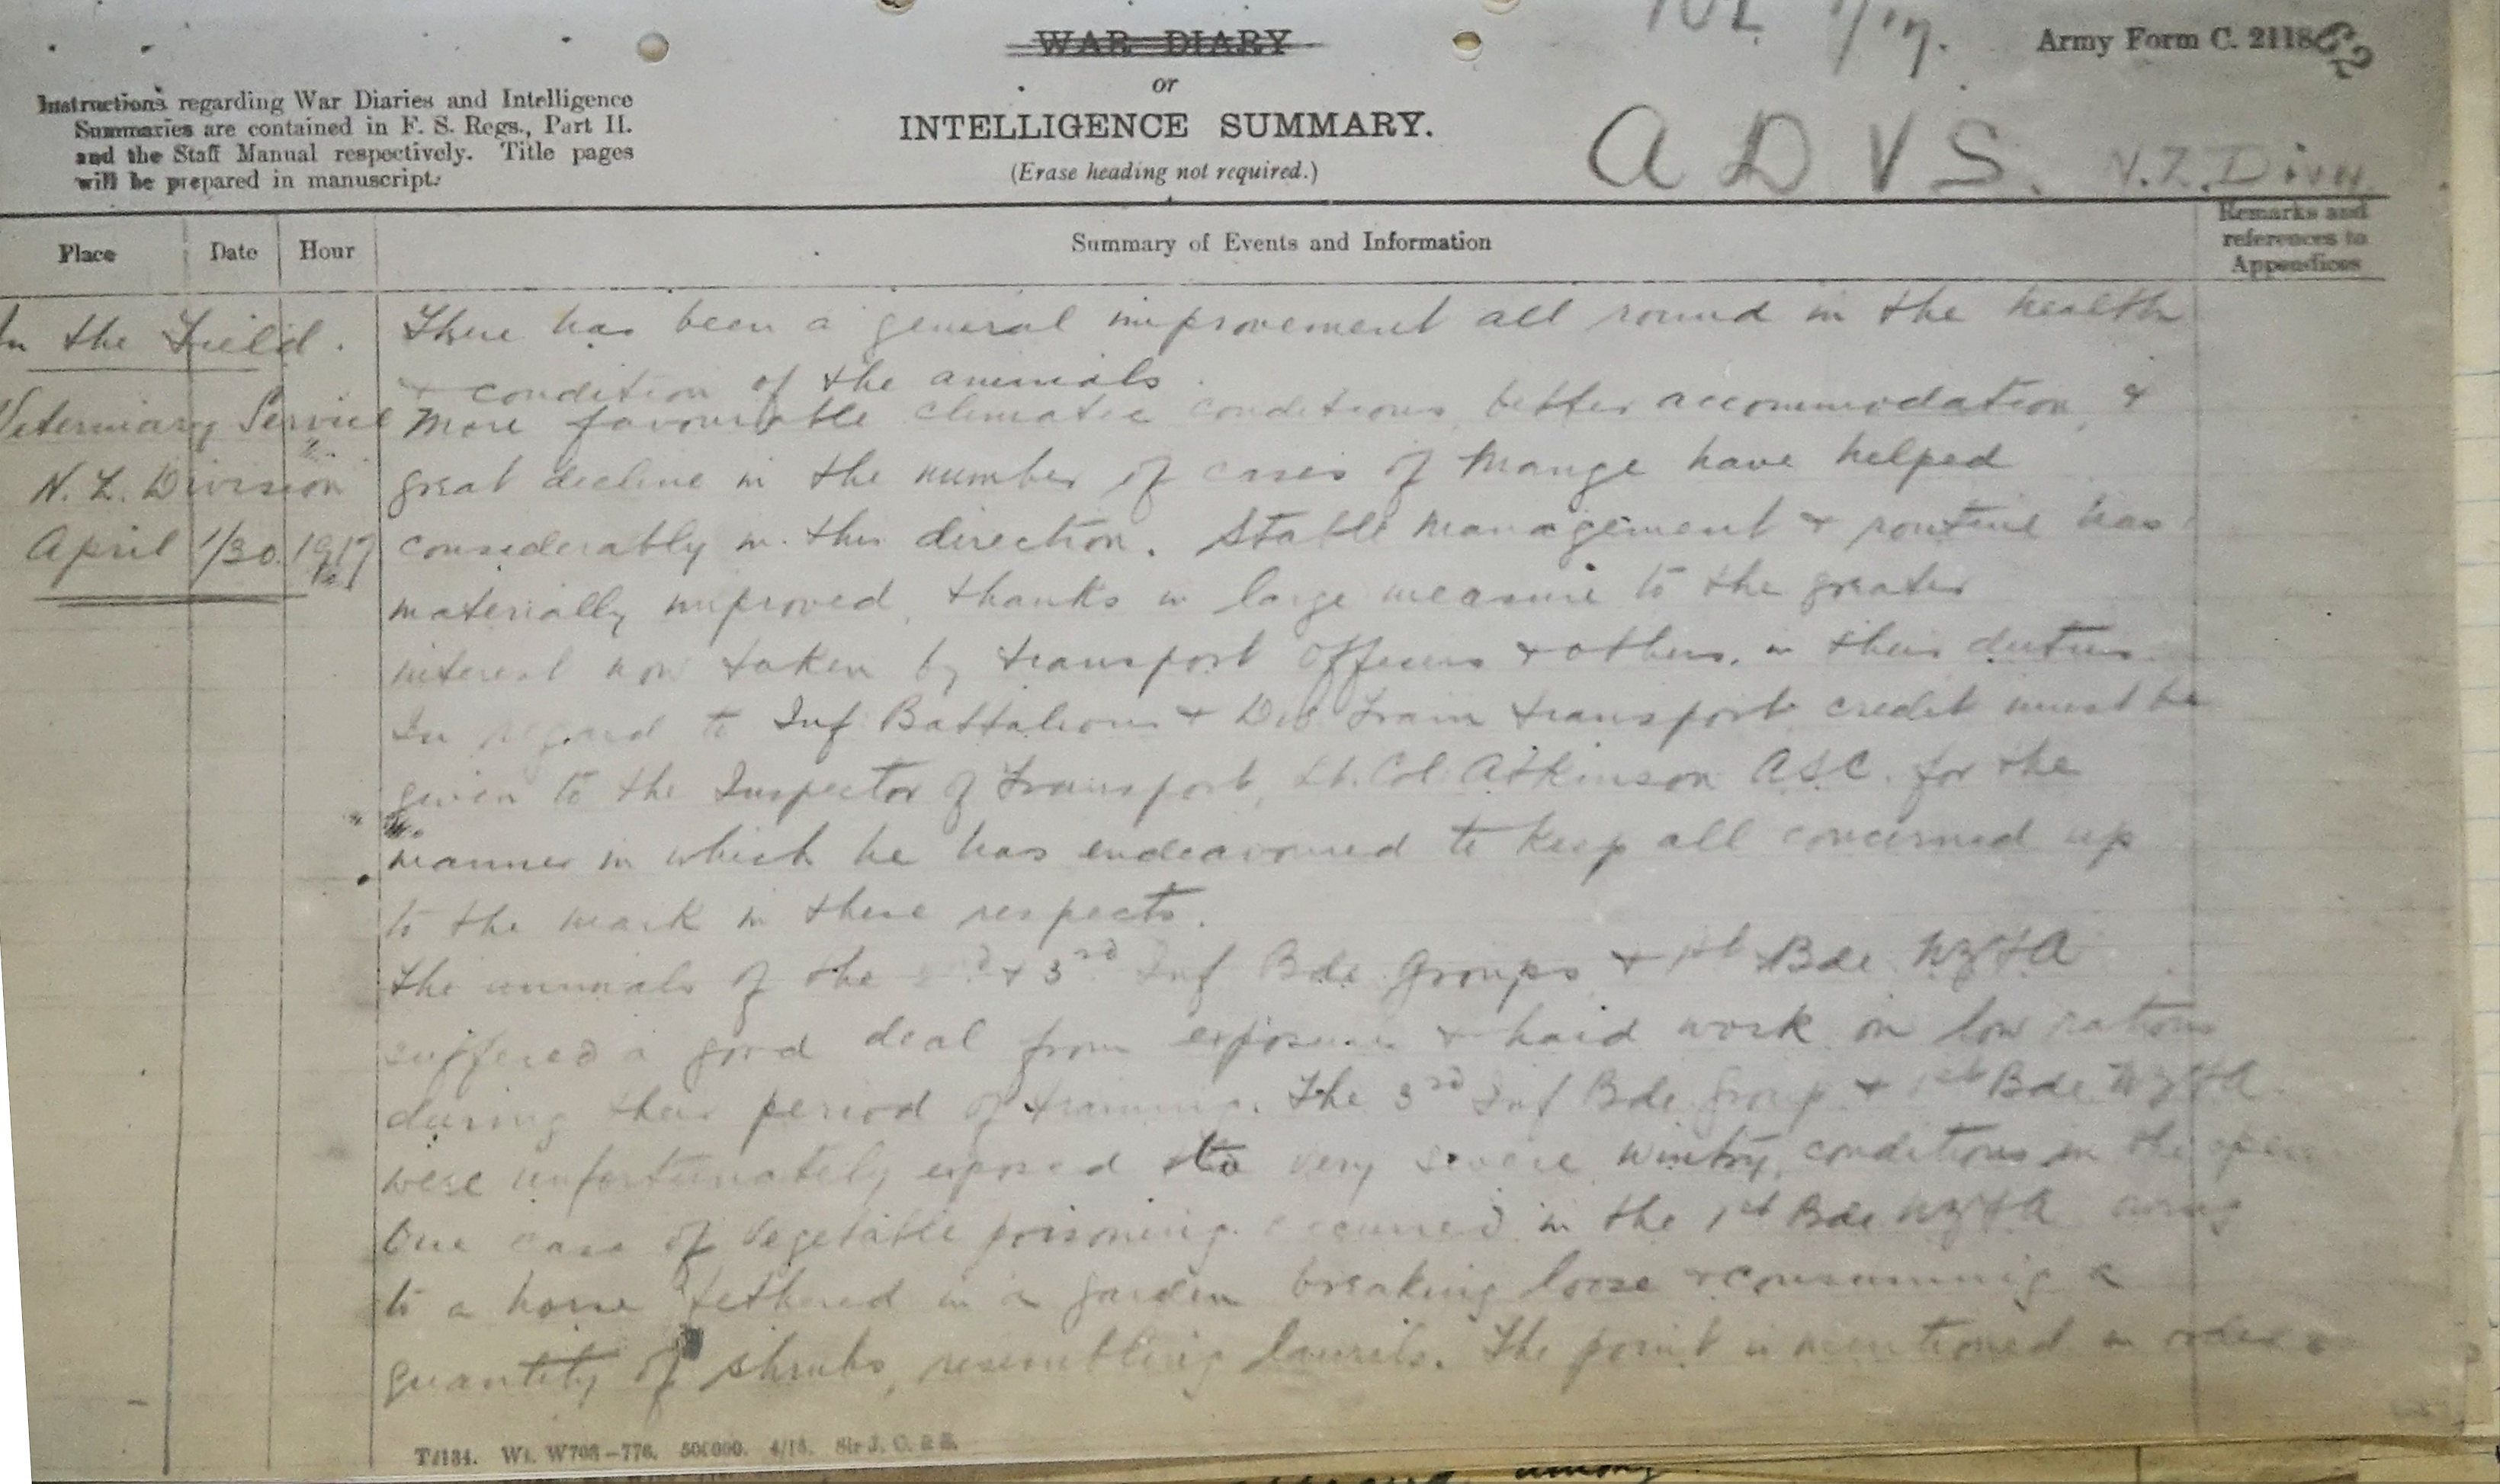 WAR DIARY
or
INTELLIGENCE SUMMARY.
(Erase heading not required.)
Instructions regarding War Diaries and Intelligence
Summaries are contained in F. S. Regs., Part II.
and the Staff Manual respectively. Title pages
will be prepared in manuscript.
Army Form C. 2118
A D V S. N.Z. Divn
Place Date Hour Summary of Events and Information
Remarks and
references to
Appendices
In the Field.
Veterinary Service
N. Z. Division
April 1/30. 1917
There has been a general improvement all round in the health
+ condition of the animals.
More favourable climatic conditions, better accommodation, &
great decline in the number of cases of Mange have helped
considerably in this direction. Stable management + routine has
materially improved, thanks in large measure to the greater
interest now taken by transport officers + others, in their duties
In regard to Inf Battalions + Div Train transport credit must be
given to the Inspector of Transport, Lt. Col. Atkinson A.S.C. for the
manner in which he has endeavoured to keep all concerned up
to the mark in these respects.
The animals of the 2nd + 3rd Inf Bde Groups + 1st Bde NZFA
suffered a good deal from exposure + hard work on low rations
during their period of training. The 3rd Inf Bde Group + 1st Bde NZFA
were unfortunately exposed to very severe wintry conditions in the open
One case of vegetable poisoning occurred in the 1st Bde NZFA owing
to a horse tethered in a garden breaking loose + consuming a
quantity of shrubs, resembling laurels. The point is mentioned in order
T2134. Wt. W708-776. 500000. 4/15. Sir J. C. & S.